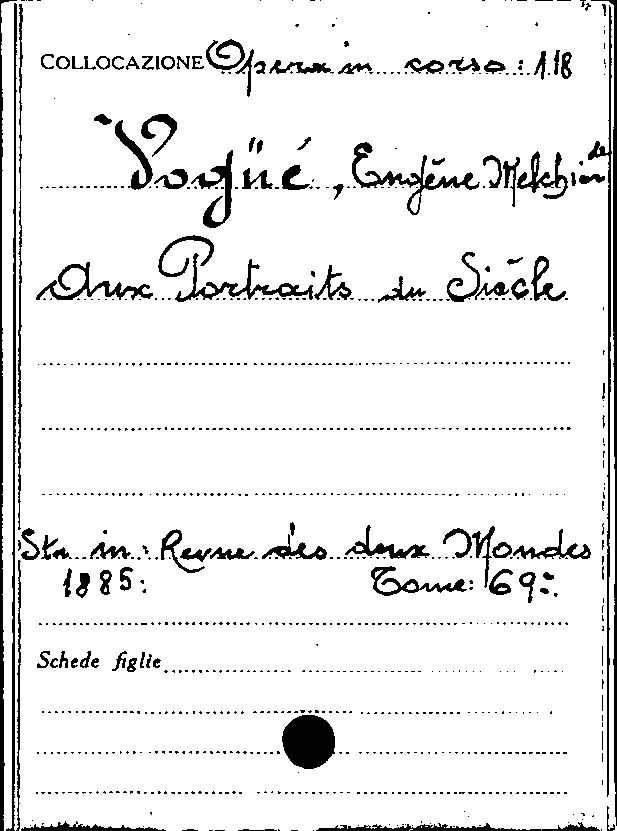 COLLOCAZIONE Opera in corso: 118
Vogüé, Eugène Melchior de
Aux Portraits du Siècle
Str in: Revue des deux Mondes
1885: Tome: 69:
Schede figlie